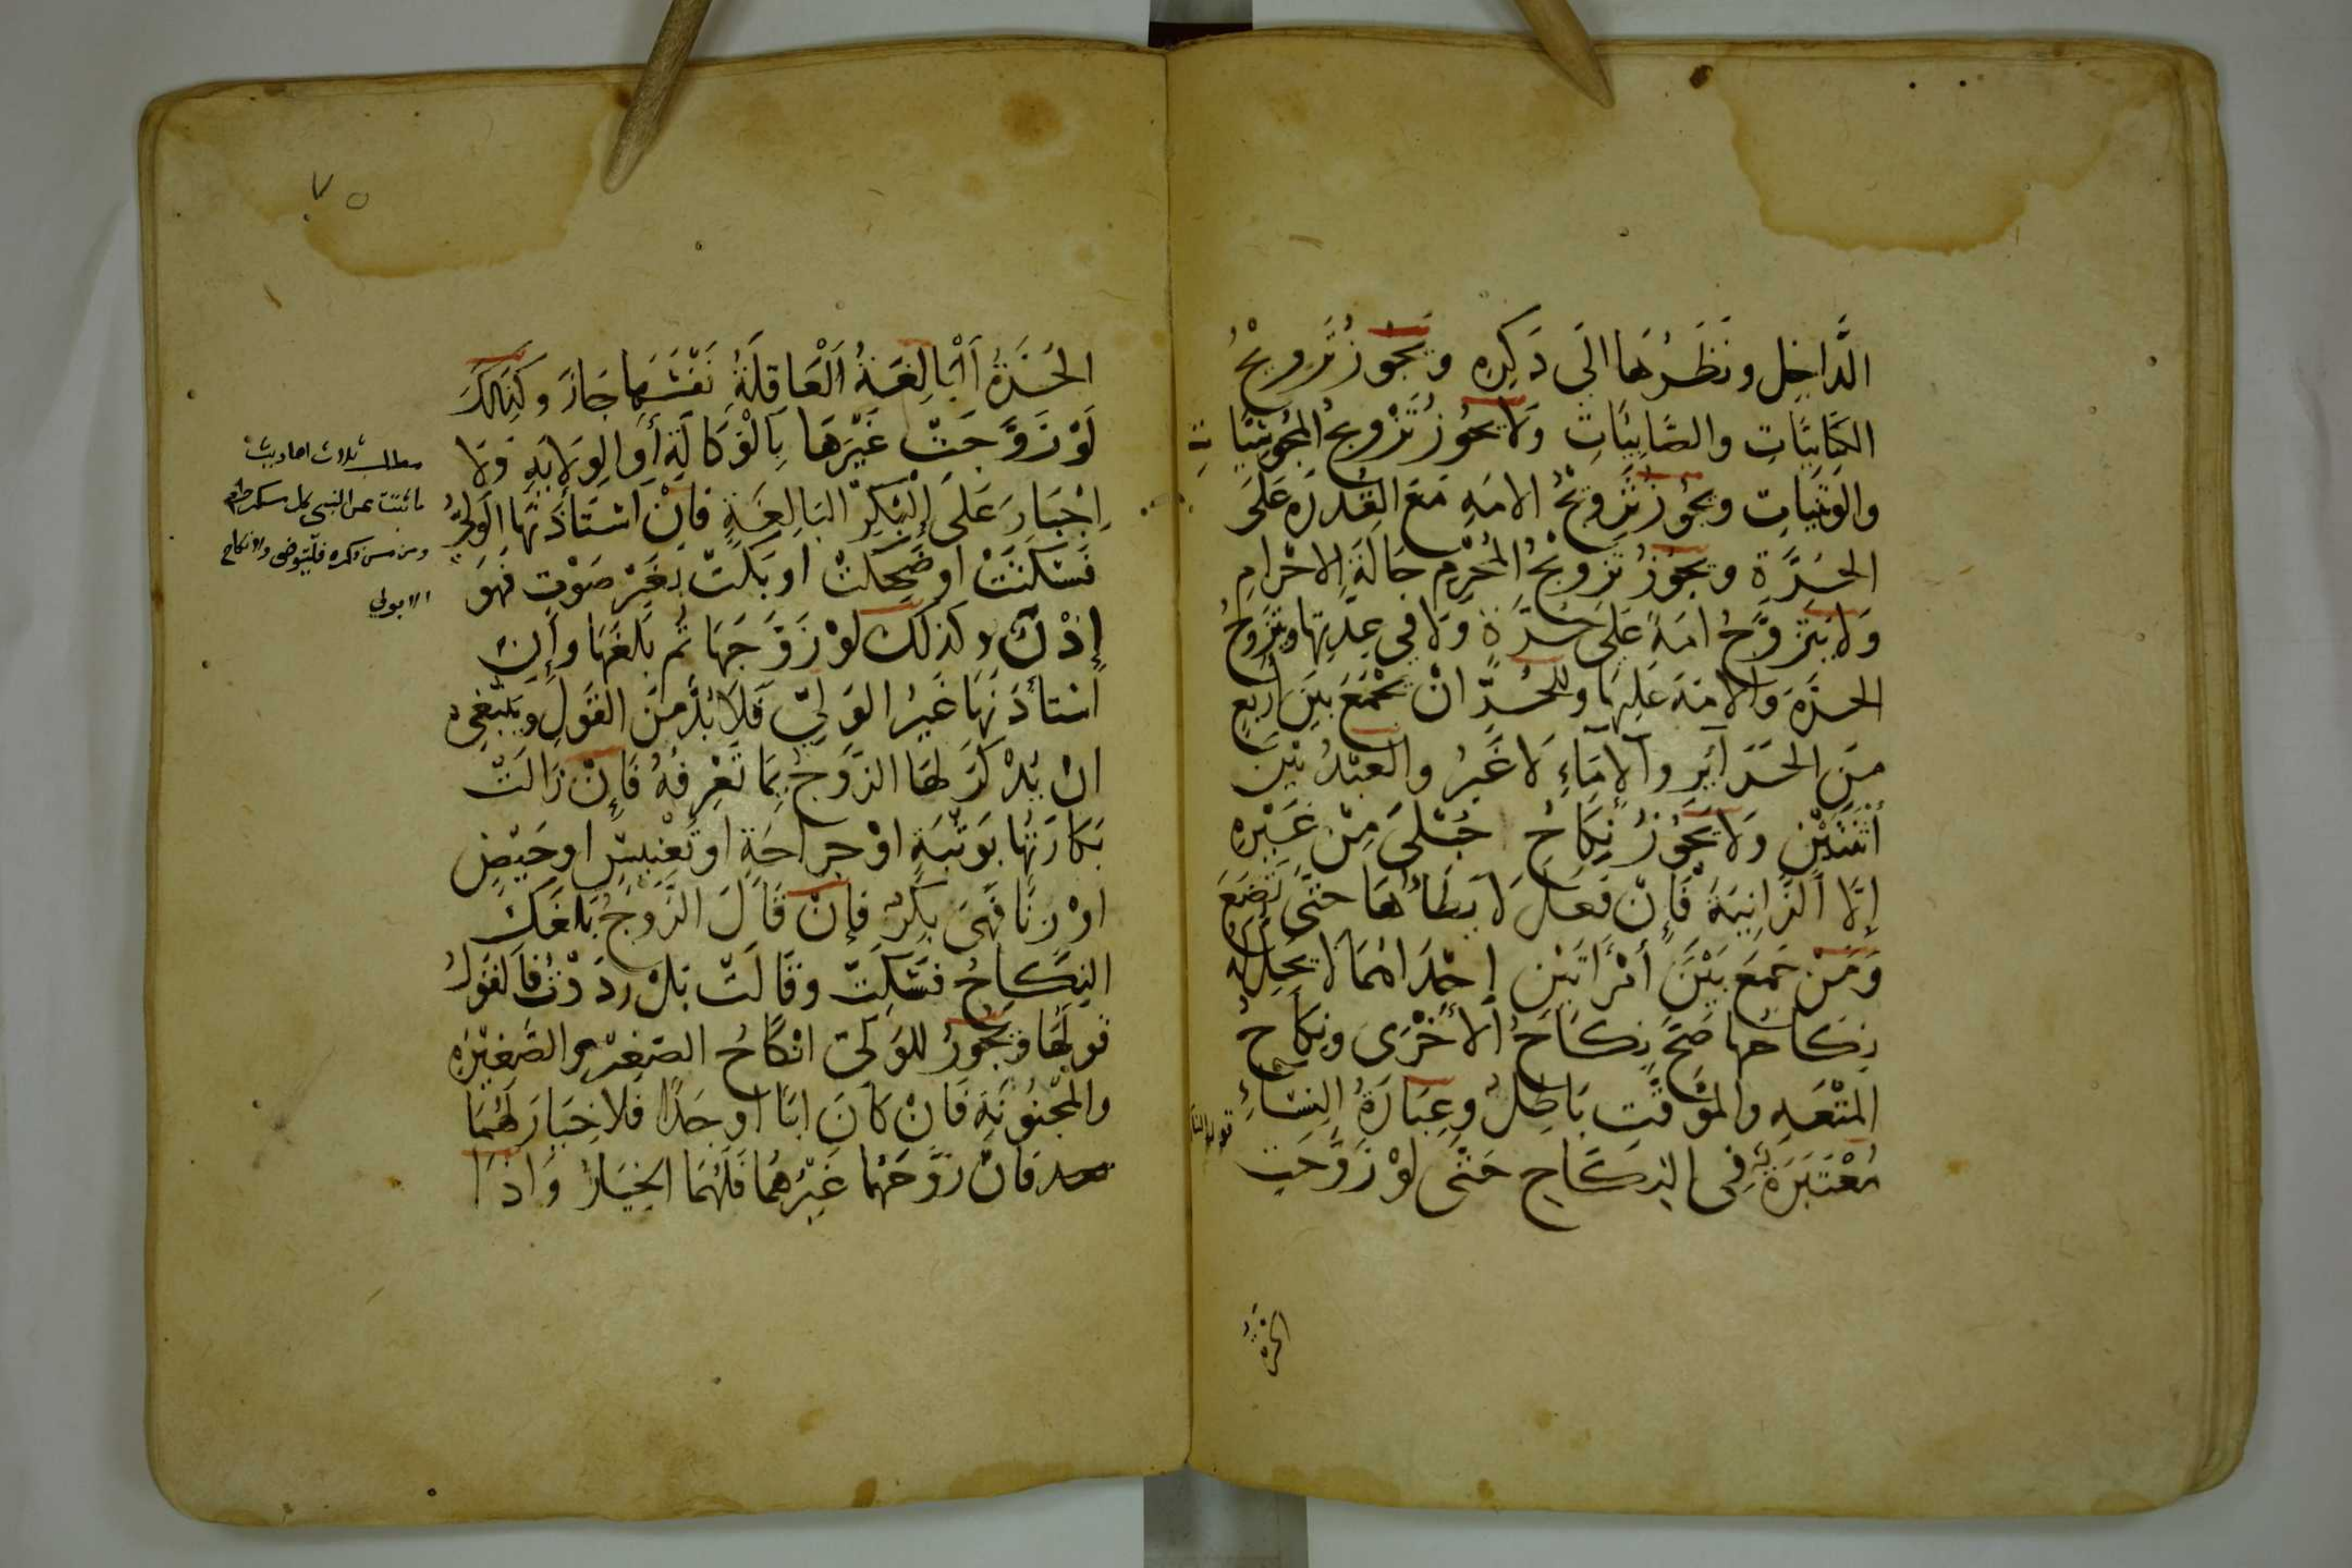 الدَّاخِلِ وَنَظَرُهَا اِلَى ذَكَرِهِ وَيَجُوزُ تَزْوِيجُ
الكِتَابِيَّاتِ والصَّابِيَّاتِ وَلَا يَجُوزُ تَزْوِيجُ المَجُوسِيَّاتِ
والوَثَنِيَّاتِ وَيَجُوزُ تَزْوِيجُ الامَةِ مَعَ القُدْرَةِ عَلَى
الحُرَّةِ وَيَجُوزُ تَزْوِيجُ المُحْرِمِ حَالَةَ الاحْرَامِ
وَلَا يَتَزَوَّجُ امَةً عَلَى حُرَّةٍ وَلَا فِي عِدَّتِهَا وَيَتَزَوَّجُ
الحُرَّةَ وَالامَةَ عَلَيْهَا وللحُرِّ انْ يَجْمَعَ بَيْنَ أَرْبَعٍ
مِنَ الحَرَآئِرِ وَالاِمَاءِ لَا غَيْرُ والعَبْدُ بَيْنَ
أثْنَتَيْنِ وَلَا يَجُوزُ نِكَاحُ حُبْلَى مِنْ غَيْرِهِ
إِلَّا الزَّانِيَةَ فَإِنْ فَعَلَ لَا يَطَأُهَا حَتَّى تَضَعَ
وَمَنْ جَمَعَ بَيْنَ أمْرَأتَيْنِ إِحْدَاهُمَا لا يَحِلُّ لَهُ
نِكَاحُهَا صَحَّ نِكَاحُ الأُخْرَى وَنِكَاحُ
المُتْعَةِ والمُوَقَّتِ بَاطِلٌ وَعِبَارَةُ النِّسَاءِ
مُعْتَبَرَةٌ فِى النِكَاحِ حَتَّى لَوْ زَوَّجَتِ
الحُرَّةُ
الحُرَّةُ اَلْبَالِغَةُ اَلْعَاقِلَةُ نَفْسَهَا جَازَ وَكَذَلِكَ
لَوْ زَوَّجَتْ غَيْرَهَا بِالْوَكَالَةِ أَوِ الوِلَايَةِ وَلَا
إِجْبَارَ عَلَى الْبِكْرِ البَالِغَةِ فَإِنْ اسْتَأذَنَهَا الوَلِيُّ
فَسَكَتَتْ اَوْ ضَحِكَتْ اَوْ بَكَتْ بِغَيْرِ صَوْتٍ فَهُوَ
إِذْنٌ وَكَذَلِكَ لَوْ زَوَّجَهَا ثُمَّ بَلَغَهَا وَإِنِ
اسْتَأذَنَهَا غَيْرُ الوَلِيِّ فَلَا بُدَّ مِنَ القَوْلِ وَيَنْبَغِى
انْ يَذْكُرَ لَهَا الزَّوْجَ بِمَا تَعْرِفُهُ فَإِنْ زَالَتْ
بَكَارَتُهَا بِوَثْبَةٍ اَوْ جِرَاحَةٍ اَوْ تَعْنِيسٍ اَوْ حَيْضٍ
اوْ زِنًا فَهِىَ بِكْرٌ فَإِنْ قَالَ الزَّوْجُ بَلَغَكِ
النِكَاحُ فَسَكَتِّ وَقَالَتْ بَلْ رَدَدْتُ فَالقَوْلُ
قَوْلُهَا وَيَجُوزُ لِلوَلِىِّ انْكَاحُ الصَّغِيرِ والصَّغِيرَةِ
والمَجْنُونَةِ فَانْ كَانَ ابًا اوْ جَدًّا فَلا خِيَارَ لَهُمَا
بعد فَانْ زَوَّجَهُمَا غَيْرُهُمَا فَلَهُمَا الخِيَارُ وَاذَا
مطلب ثلاث احاديث
ما ثبتت عن النبى كل مسكر حرام
ومن مس ذكره فليتوضى ولا نكاح
الا بولي
٧٥